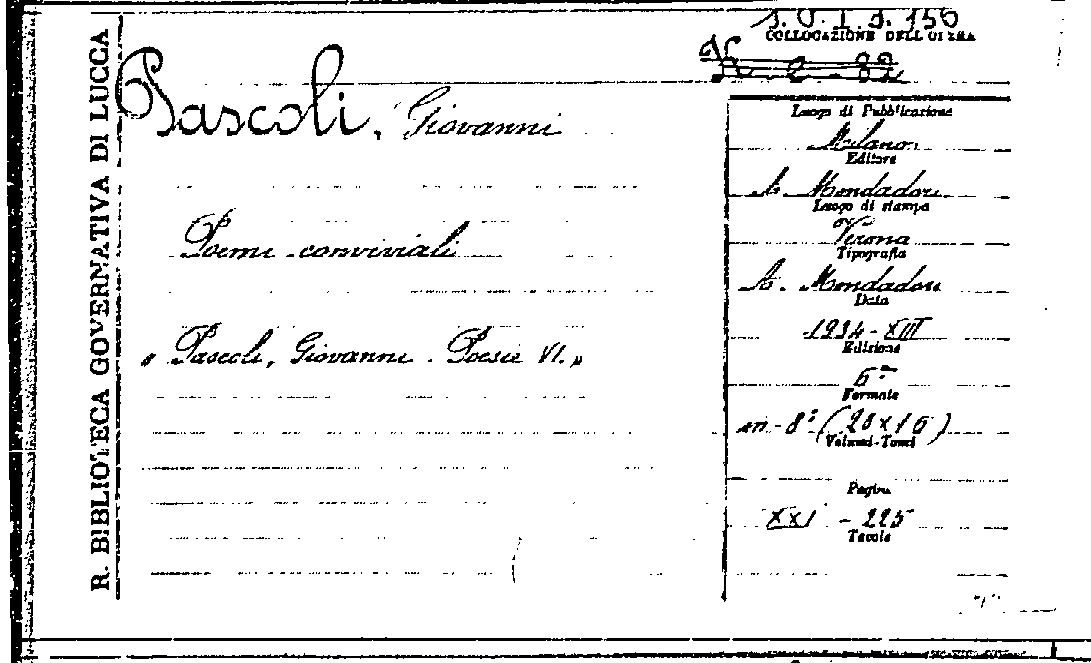 R. BIBLIOTECA GOVERNATIVA DI LUCCA
COLLOCAZIONE DELL'OPERA
Pascoli, Giovanni
Poemi conviviali
« Pascoli, Giovanni - Poesie VI. »
Luogo di Pubblicazione
Milano
Editore
A. Mondadori
Luogo di stampa
Verona
Tipografia
A. Mondadori
Data
1934-XIII
Edizione
6ª
Formato
in-8° (20x16)
Volumi-Tomi
Pagine
XXI - 225
Tavole